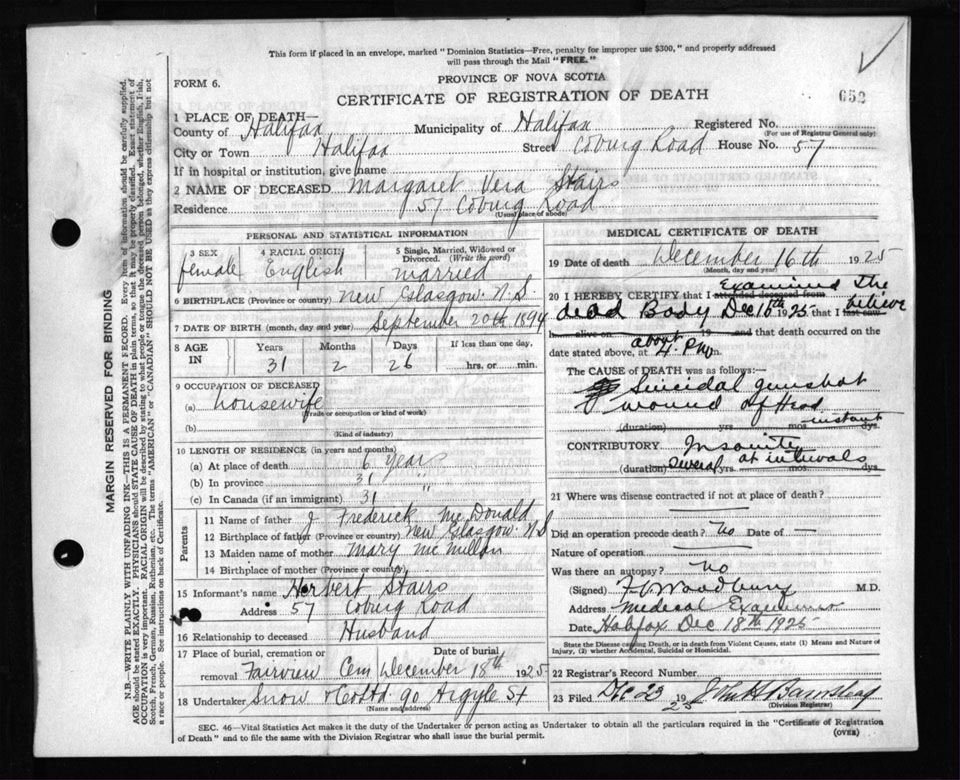 This form if placed in an envelope, marked "Dominion Statistics—Free, penalty for improper use $300," and properly addressed
will pass through the Mail "FREE."
FORM 6.
PROVINCE OF NOVA SCOTIA
CERTIFICATE OF REGISTRATION OF DEATH
652
1 PLACE OF DEATH—
County of Halifax Municipality of Halifax Registered No.
(For use of Registrar General only)
City or Town Halifax Street Coburg Road House No. 57
If in hospital or institution, give name
2 NAME OF DECEASED Margaret Vera Stairs
Residence 57 Coburg Road
(Usual place of abode)
PERSONAL AND STATISTICAL INFORMATION
3 SEX 4 RACIAL ORIGIN 5 Single, Married, Widowed or Divorced. (Write the word)
female English married
6 BIRTHPLACE (Province or country) New Glasgow. N.S.
7 DATE OF BIRTH (month, day and year) September 20th 1894
8 AGE IN Years Months Days If less than one day,
31 2 26 hrs. or min.
9 OCCUPATION OF DECEASED
(a) housewife
(Trade or occupation or kind of work)
(b)
(Kind of industry)
10 LENGTH OF RESIDENCE (in years and months)
(a) At place of death 6 years
(b) In province 31 "
(c) In Canada (if an immigrant) 31
Parents
11 Name of father J Frederick McDonald
12 Birthplace of father (Province or country) New Glasgow. N.S
13 Maiden name of mother Mary McMillan
14 Birthplace of mother (Province or country)
15 Informant's name Herbert Stairs
Address 57 Coburg Road
16 Relationship to deceased Husband
17 Place of burial, cremation or removal Date of burial
Fairview Cem December 18th 1925
18 Undertaker Snow & Co Ltd 90 Argyle St
(Name and address)
MEDICAL CERTIFICATE OF DEATH
19 Date of death December 16th 1925
(Month, day and year)
Examined The
20 I HEREBY CERTIFY that I attended deceased from
dead Body Dec 16th 1925 that I last saw believe
h alive on 19 and that death occurred on the
date stated above, at about 4. PM m.
The CAUSE of DEATH was as follows:—
Suicidal gunshot
wound of Head
(duration) yrs. mos. days. instant
CONTRIBUTORY Insanity
(duration) several yrs. mos. dys. at intervals
21 Where was disease contracted if not at place of death?
Did an operation precede death? no Date of —
Nature of operation
Was there an autopsy? no
(Signed) F V Woodbury M.D.
Address Medical Examiner
Date Halifax Dec 18th 1925
State the Disease causing Death, or in death from Violent Causes, state (1) Means and Nature of
Injury, (2) whether Accidental, Suicidal or Homicidal.
22 Registrar's Record Number
23 Filed Dec 23 1925
(Division Registrar)
SEC. 46—Vital Statistics Act makes it the duty of the Undertaker or person acting as Undertaker to obtain all the particulars required in the "Certificate of Registration
of Death" and to file the same with the Division Registrar who shall issue the burial permit.
(OVER)
MARGIN RESERVED FOR BINDING
N.B.—WRITE PLAINLY WITH UNFADING INK—THIS IS A PERMANENT RECORD. Every item of information should be carefully supplied.
AGE should be stated EXACTLY. PHYSICIANS should STATE CAUSE OF DEATH in plain terms, so that it may be properly classified. Exact statement of
OCCUPATION is very important. RACIAL ORIGIN will be described by stating to what people or tongue the deceased person belonged, whether English, Irish,
Scotch, French, German, Russian, Ruthenian, etc. The terms "AMERICAN" or "CANADIAN" SHOULD NOT BE USED as they express citizenship but not
a race or people. See instructions on back of Certificate.